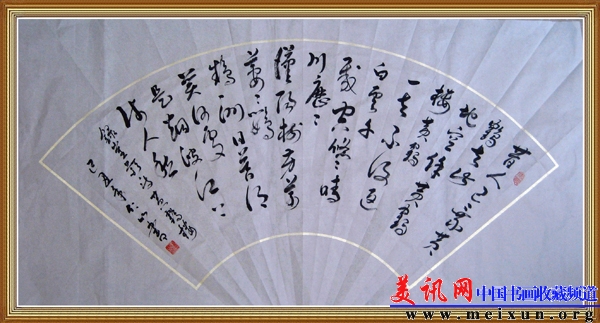 昔人已乘黄
鹤去此
地空余黄鹤
楼黄鹤
一去不复返
白云千
载空悠悠晴
川历历
汉阳树芳草
萋萋鹦
鹉洲日暮乡
关何处
是烟波江上
使人愁
录崔颢诗黄鹤楼
己丑年仁山书
美讯网中国书画收藏频道
www.meixun.org